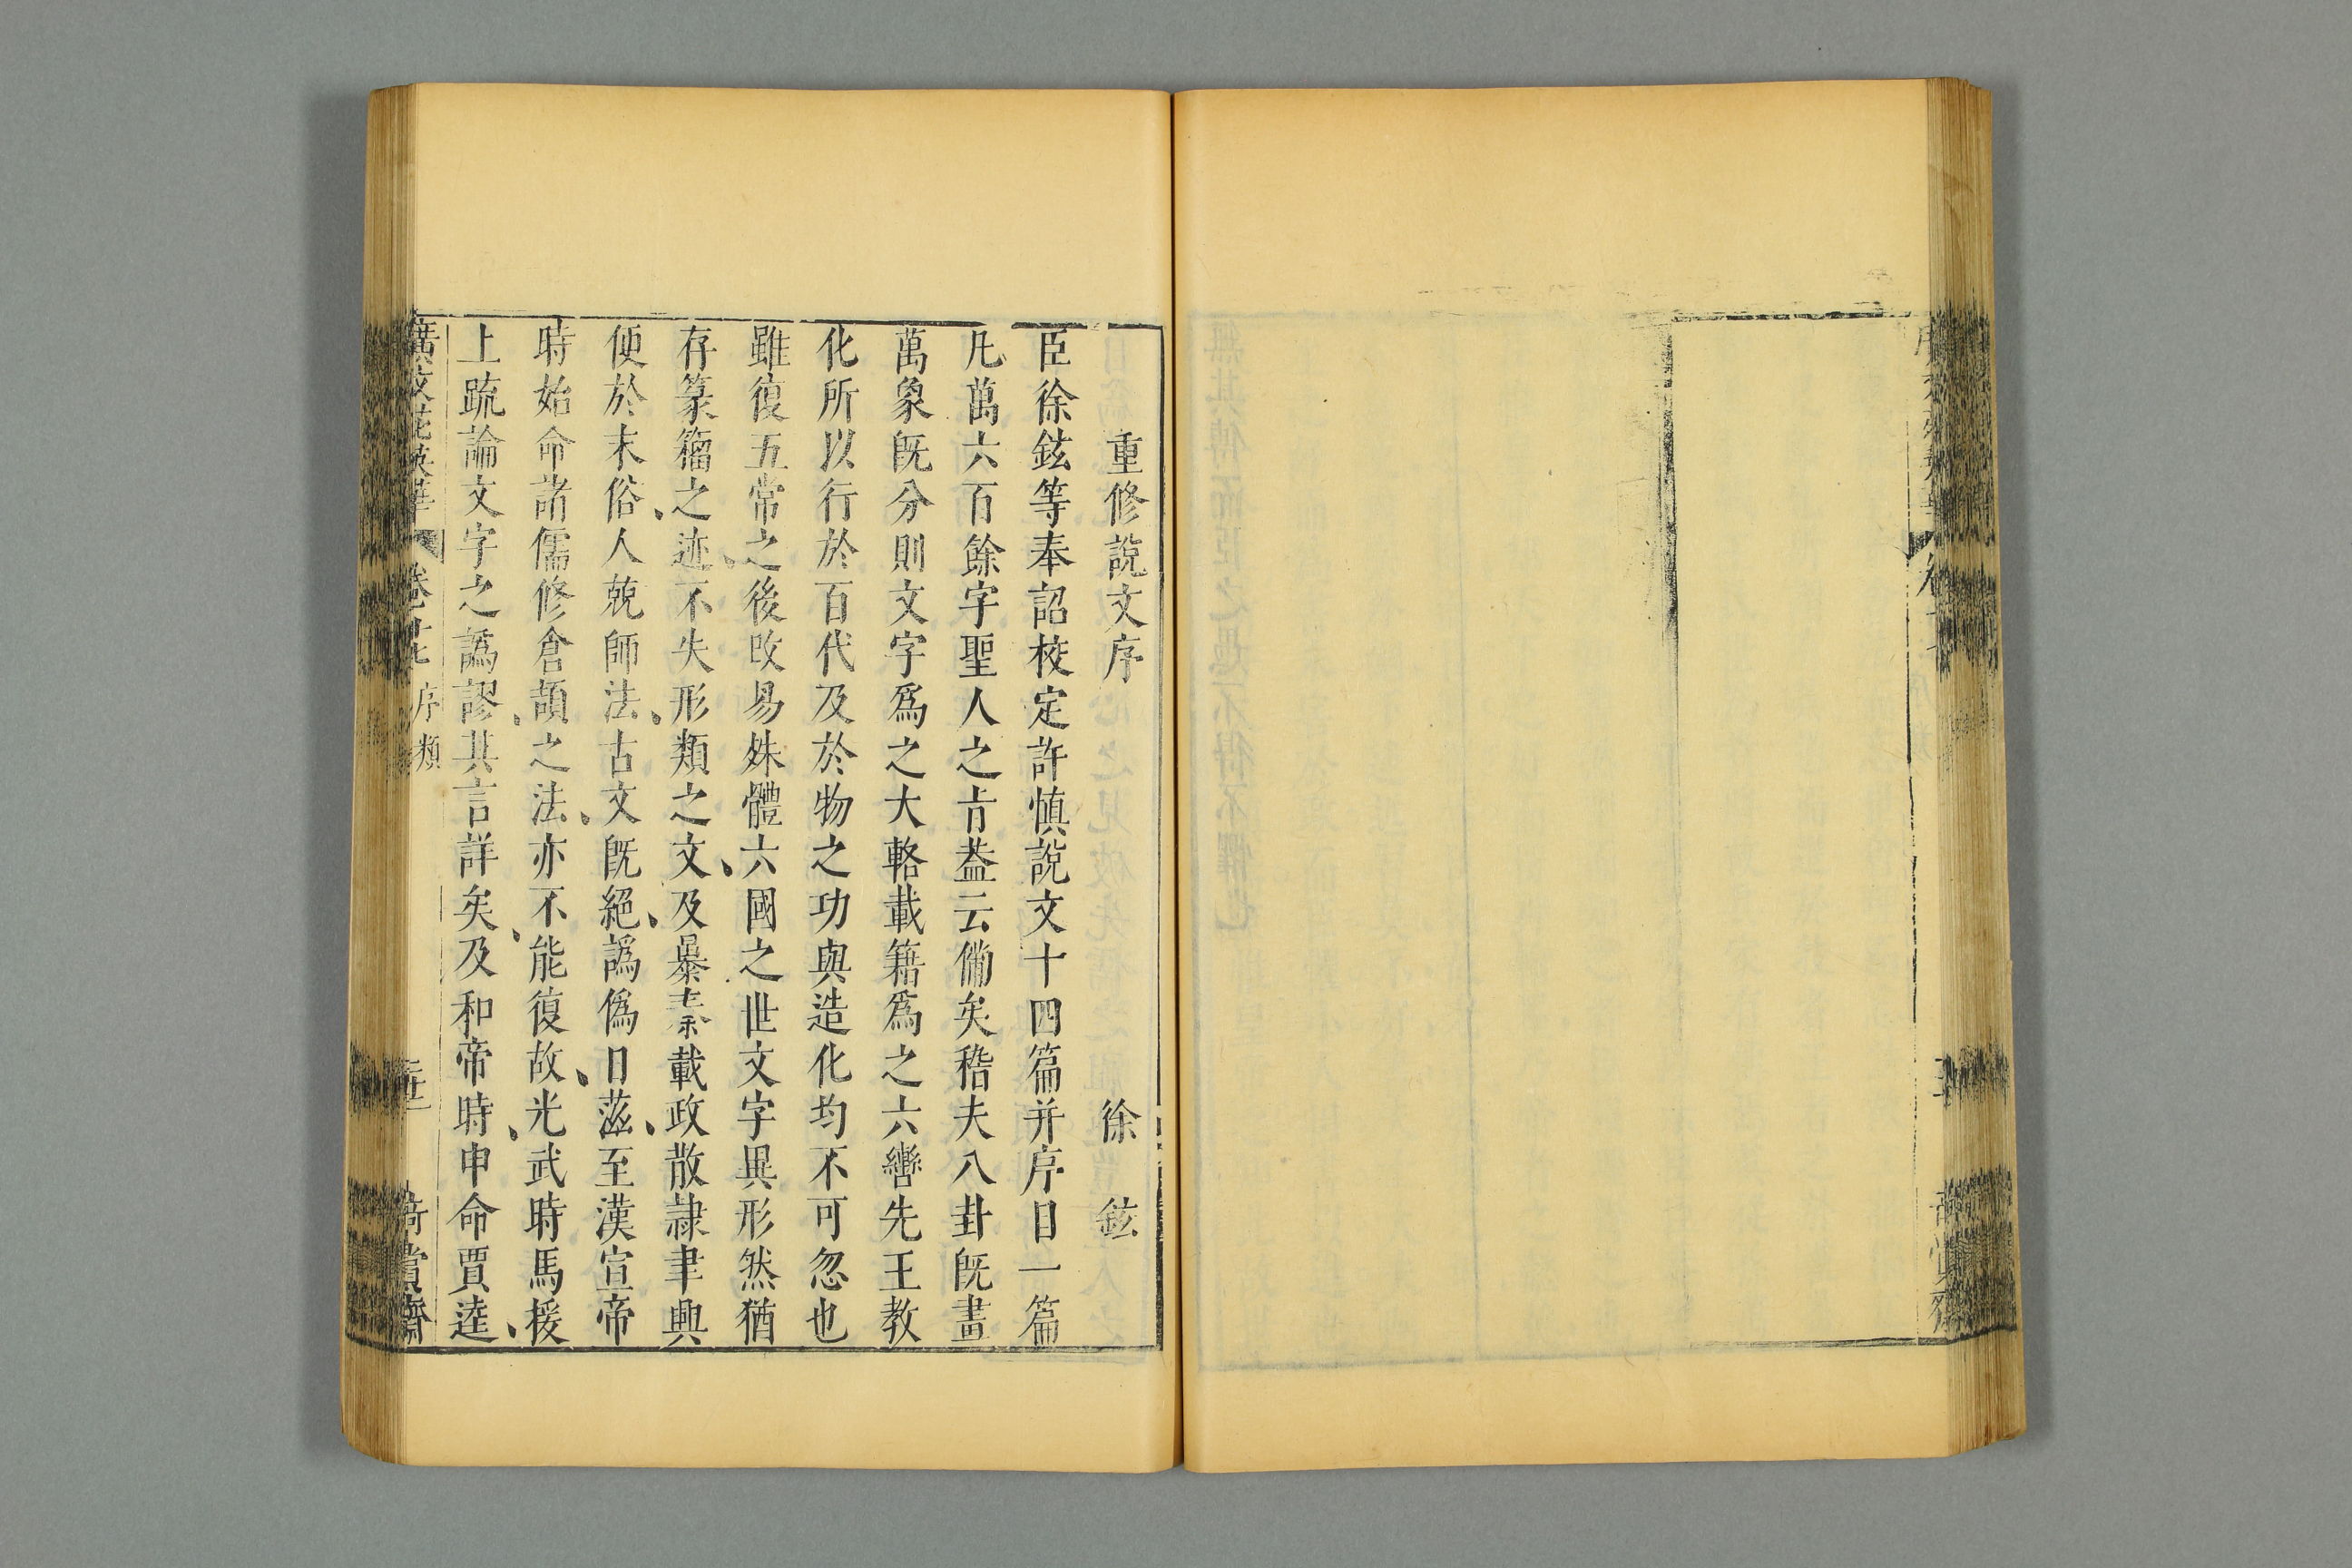 重修說文序　徐　鉉
臣徐鉉等奉詔校定許慎說文十四篇并序目一篇
凡萬六百餘字聖人之㫖葢云備矣稽夫八卦旣畫
萬象旣分則文字爲之大輅載籍爲之六轡先王教
化所以行於百代及於物之功與造化均不可忽也
雖復五常之後改易殊體六國之世文字異形然猶
存篆籀之迹不失形類之文及暴秦載政散隷聿興
便於末俗人兢師法古文旣絕譌僞日滋至漢宣帝
時始命諸儒修倉頡之法亦不能復故光武時馬援
上疏論文字之譌謬其言詳矣及和帝時申命賈逵
廣文苑英華　卷廿七　序類　奇賞齋